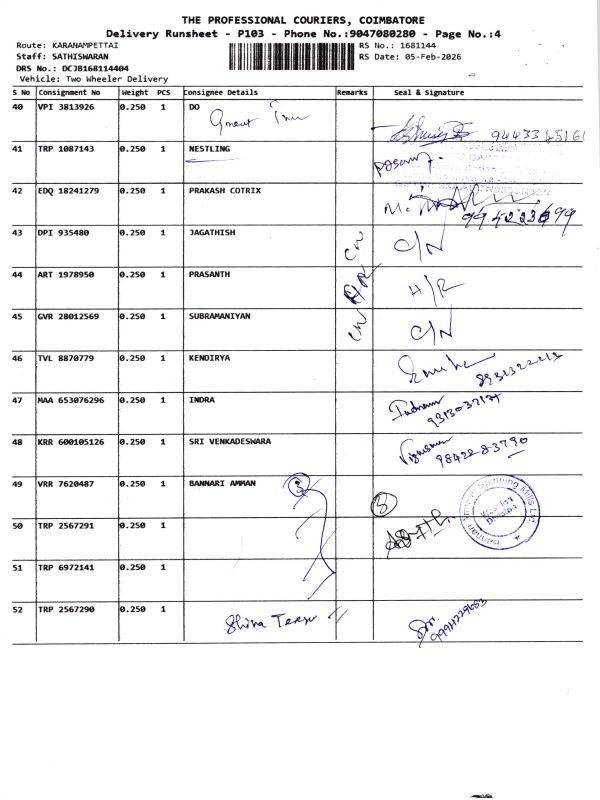 THE PROFESSIONAL COURIERS, COIMBATORE
Delivery Runsheet - P103 - Phone No.:9047080280 - Page No.:4
Route: KARANAMPETTAI RS No.: 1681144
Staff: SATHISWARAN RS Date: 05-Feb-2026
DRS No.: DCJB168114404
Vehicle: Two Wheeler Delivery
S No Consignment No Weight PCS Consignee Details Remarks Seal & Signature
40 VPI 3813926 0.250 1 DO
Inn
41 TRP 1087143 0.250 1 NESTLING
42 EDQ 18241279 0.250 1 PRAKASH COTRIX
43 DPI 935480 0.250 1 JAGATHISH C/N C/N
44 ART 1978950 0.250 1 PRASANTH H/R H/R
45 GVR 28012569 0.250 1 SUBRAMANIYAN C/N C/N
46 TVL 8870779 0.250 1 KENDIRYA
47 MAA 653076296 0.250 1 INDRA
48 KRR 600105126 0.250 1 SRI VENKADESWARA
9842283790
49 VRR 7620487 0.250 1 BANNARI AMMAN 3 3
Bannari Amman Spinning Mills Ltd.
Weaving Division
50 TRP 2567291 0.250 1
51 TRP 6972141 0.250 1
52 TRP 2567290 0.250 1
Shiva